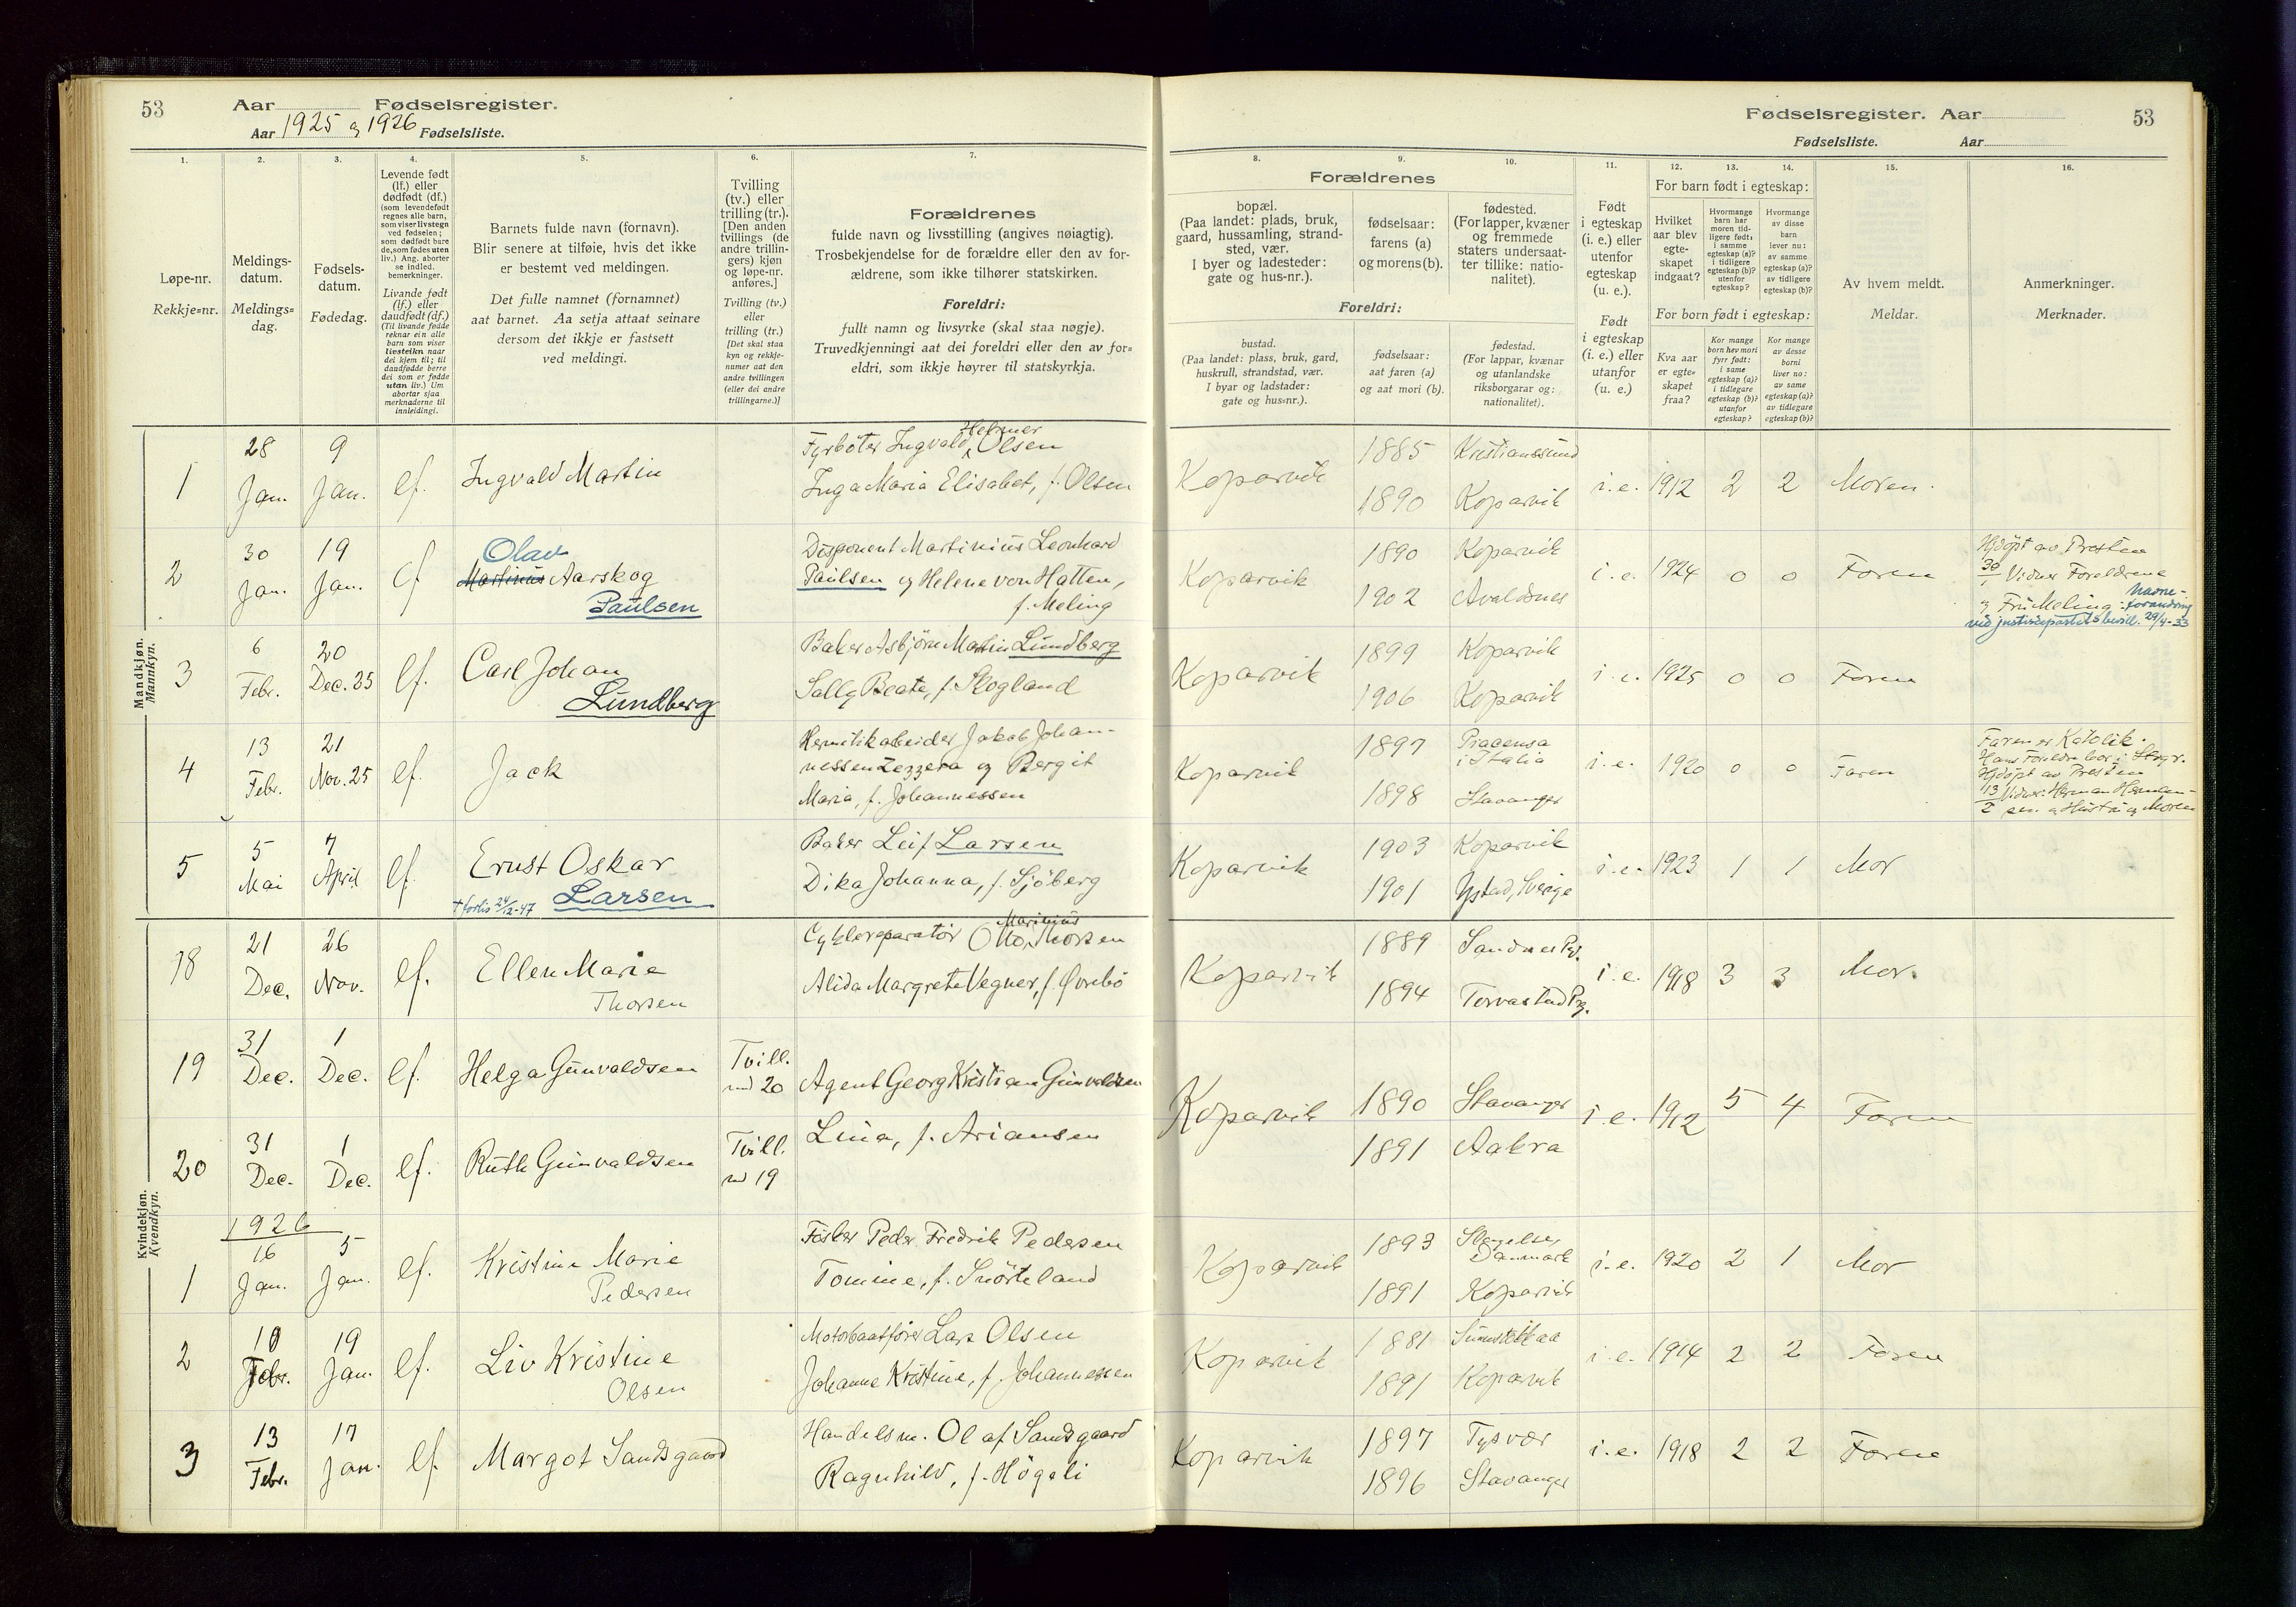 53
Aar
Fødselsregister.
Aar 1925 og 1926 Fødselsliste.
1.
2.
3.
4.
5.
6.
7.
Løpe-nr.
Rekkje=nr.
Meldings-
datum.
Meldings=
dag.
Fødsels-
datum.
Fødedag.
Levende født
(lf.) eller
dødfødt (df.)
(som levendefødt
regnes alle barn,
som viser livstegn
ved fødselen;
som dødfødt bare
de, som fødes uten
liv.) Ang. aborter
se indled.
bemerkninger.
Livande født
(lf.) eller
daudfødt (df.)
(Til livande fødde
reknar ein alle
barn som viser
livsteikn naar
dei kjem til; til
daudfødde berre
dei som er fødde
utan liv.) Um
abortar sjaa
merknaderne til
innleidingi.
Barnets fulde navn (fornavn).
Blir senere at tilføie, hvis det ikke
er bestemt ved meldingen.
Det fulle namnet (fornamnet)
aat barnet. Aa setja attaat seinare
dersom det ikkje er fastsett
ved meldingi.
Tvilling
(tv.) eller
trilling (tr.).
[Den anden
tvillings (de
andre trillin-
gers) kjøn
og løpe-nr.
anføres.]
Tvilling (tv.)
eller
trilling (tr.)
[Det skal staa
kyn og rekkje-
numer aat den
andre tvillingen
(eller dei andre
trillingarne.)]
Forældrenes
fulde navn og livsstilling (angives nøiagtig).
Trosbekjendelse for de forældre eller den av for-
ældrene, som ikke tilhører statskirken.
Foreldri:
fullt namn og livsyrke (skal staa nøgje).
Truvedkjenningi aat dei foreldri eller den av for=
eldri, som ikkje høyrer til statskyrkja.
Mandkjøn.
Mannkyn.
1
28
Jan.
9
Jan.
lf.
Ingvald Martin
Helmer
Fyrbøter Ingvald Olsen
Inga Maria Elisabet, f. Olsen
2
30
Jan.
19
Jan.
lf
Olav
Martinius Aarskog
Paulsen
Disponent Martinius Leonhard
Paulsen og Helene von Hatten,
f. Meling
3
6
Febr.
20
Dec. 25
lf.
Carl Johan
Lundberg
Baker Asbjørn Martin Lundberg
Sally Beate, f. Skogland
4
13
Febr.
21
Nov. 25
lf.
Jack
Hermetikarbeider Jakob Johan-
nessen Zezzera og Bergit
Maria, f. Johannessen
5
5
Mai
7
April
lf.
Ernst Oskar
† forlis 24/12-47 Larsen
Baker Leif Larsen
Dika Johanna, f. Sjöberg
Kvindekjøn.
Kvendkyn.
18
21
Dec.
26
Nov.
lf.
Ellen Marie
Thorsen
Marinius
Cyklereparatør Otto Thorsen
Alida Margrete Vegner, f. Øvrebö
19
31
Dec.
1
Dec.
lf.
Helga Gunvaldsen
Tvill.
med 20
Agent Georg Kristian Gunvaldsen
Lina, f. Ariansen
20
31
Dec.
1
Dec.
lf.
Ruth Gunvaldsen
Tvill.
med 19
1926
1
16
Jan.
5
Jan.
lf.
Kristine Marie
Pedersen
Fisker Peder Fredrik Pedersen
Tomine, f. Snörteland
2
10
Febr.
19
Jan.
lf.
Liv Kristine
Olsen
Motorbaatfører Lars Olsen
Johanne Kristine, f. Johannessen
3
13
Febr.
17
Jan.
lf.
Margot Sandsgaard
Handelsm. Olaf Sandsgaard
Ragnhild, f. Högeli
Fødselsregister. Aar
53
Fødselsliste.
Aar
8.
9.
10.
11.
12.
13.
14.
15.
16.
Forældrenes
bopæl.
(Paa landet: plads, bruk,
gaard, hussamling, strand-
sted, vær.
I byer og ladesteder:
gate og hus-nr.).
fødselsaar:
farens (a)
og morens (b).
fødested.
(For lapper, kvæner
og fremmede
staters undersaat-
ter tillike: natio-
nalitet).
Foreldri:
bustad.
(Paa landet: plass, bruk, gard,
huskrull, strandstad, vær.
I byar og ladstader:
gate og hus=nr.).
fødselsaar:
aat faren (a)
og aat mori (b).
fødestad.
(For lappar, kvænar
og utanlandske
riksborgarar og:
nationalitet).
Født
i egteskap
(i. e.) eller
utenfor
egteskap
(u. e.).
Født
i egteskap
(i. e.) eller
utanfor
(u. e.)
For barn født i egteskap:
Hvilket
aar blev
egte-
skapet
indgaat?
Hvormange
barn har
moren tid-
ligere født:
i samme
egteskap (a)?
i tidligere
egteskap (b)?
utenfor
egteskap?
Hvormange
av disse
barn
lever nu:
av samme
egteskap (a)?
av tidligere
egteskap (b)?
For born født i egteskap:
Kva aar
er egte=
skapet
fraa?
Kor mange
born hev mori
fyrr født:
i same
egteskap (a)?
i tidlegare
egteskap (b)?
utanfor
egteskap?
Kor mange
av desse
borni
liver no:
av same
egteskap (a)?
av tidlegare
egteskap (b)?
Av hvem meldt.
Meldar.
Anmerkninger.
Merknader.
Koparvik
1885
1890
Kristianssund
Koparvik
i. e.
1912
2
2
Moren.
Koparvik
1890
1902
Koparvik
Avaldsnes
i. e.
1924
0
0
Faren
Hjdöpt av Presten
30/1 Vidner Foreldrene
og Fru Meling: Navne-
forandring
ved justisdepartets bevill. 29/4-33
Koparvik
1899
1906
Koparvik
Koparvik
i. e.
1925
0
0
Faren
Koparvik
1897
1898
Piacensa
i Italia
Stavanger
i. e.
1920
0
0
Faren
Faren er Katolik.
Hans Foreldre bor i Stvgr.
Hjdöpt av Presten
13/2 Vidner: Herman Herman-
sen og Hustru og Moren
Koparvik
1903
1901
Koparvik
Ystad, Sverige
i. e.
1923
1
1
Mor
Koparvik
1889
1894
Sandnes Pgd.
Torvastad Prg.
i. e.
1918
3
3
Mor.
Koparvik
1890
1891
Stavanger
Aakra
i. e.
1912
5
4
Faren
Koparvik
1893
1891
Slagelse,
Danmark
Koparvik
i. e.
1920
2
1
Mor
Koparvik
1881
1891
Koparvik
i. e.
1914
2
2
Faren
Koparvik
1897
1896
Tysvær
Stavanger
i. e.
1918
2
2
Faren